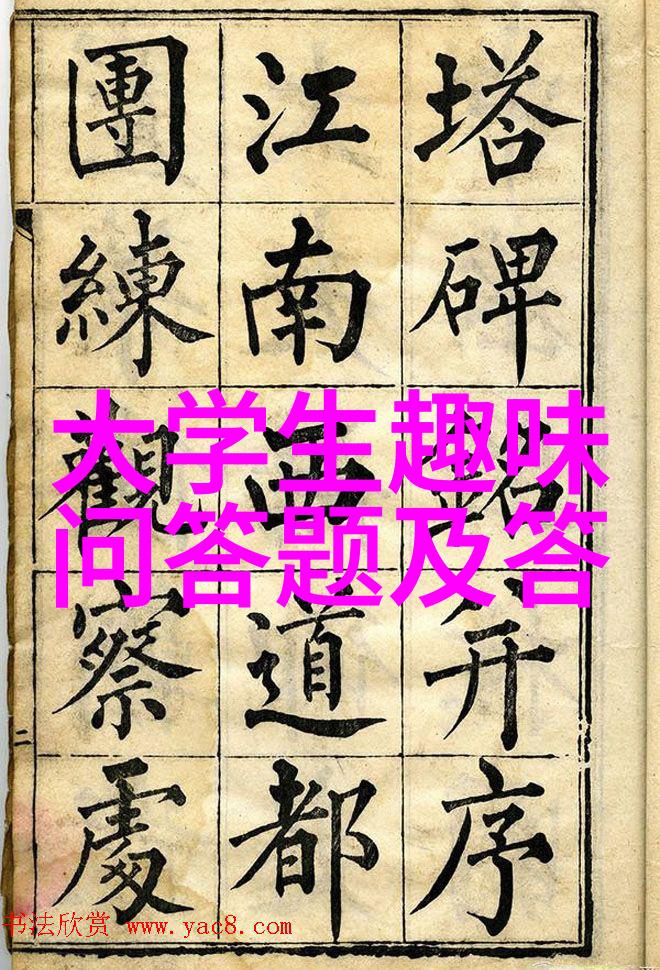 塔碑銘并序
江南西道都
團練觀察處
大学生趣味
问答题及答
二
书法欣赏 www.yac8.com